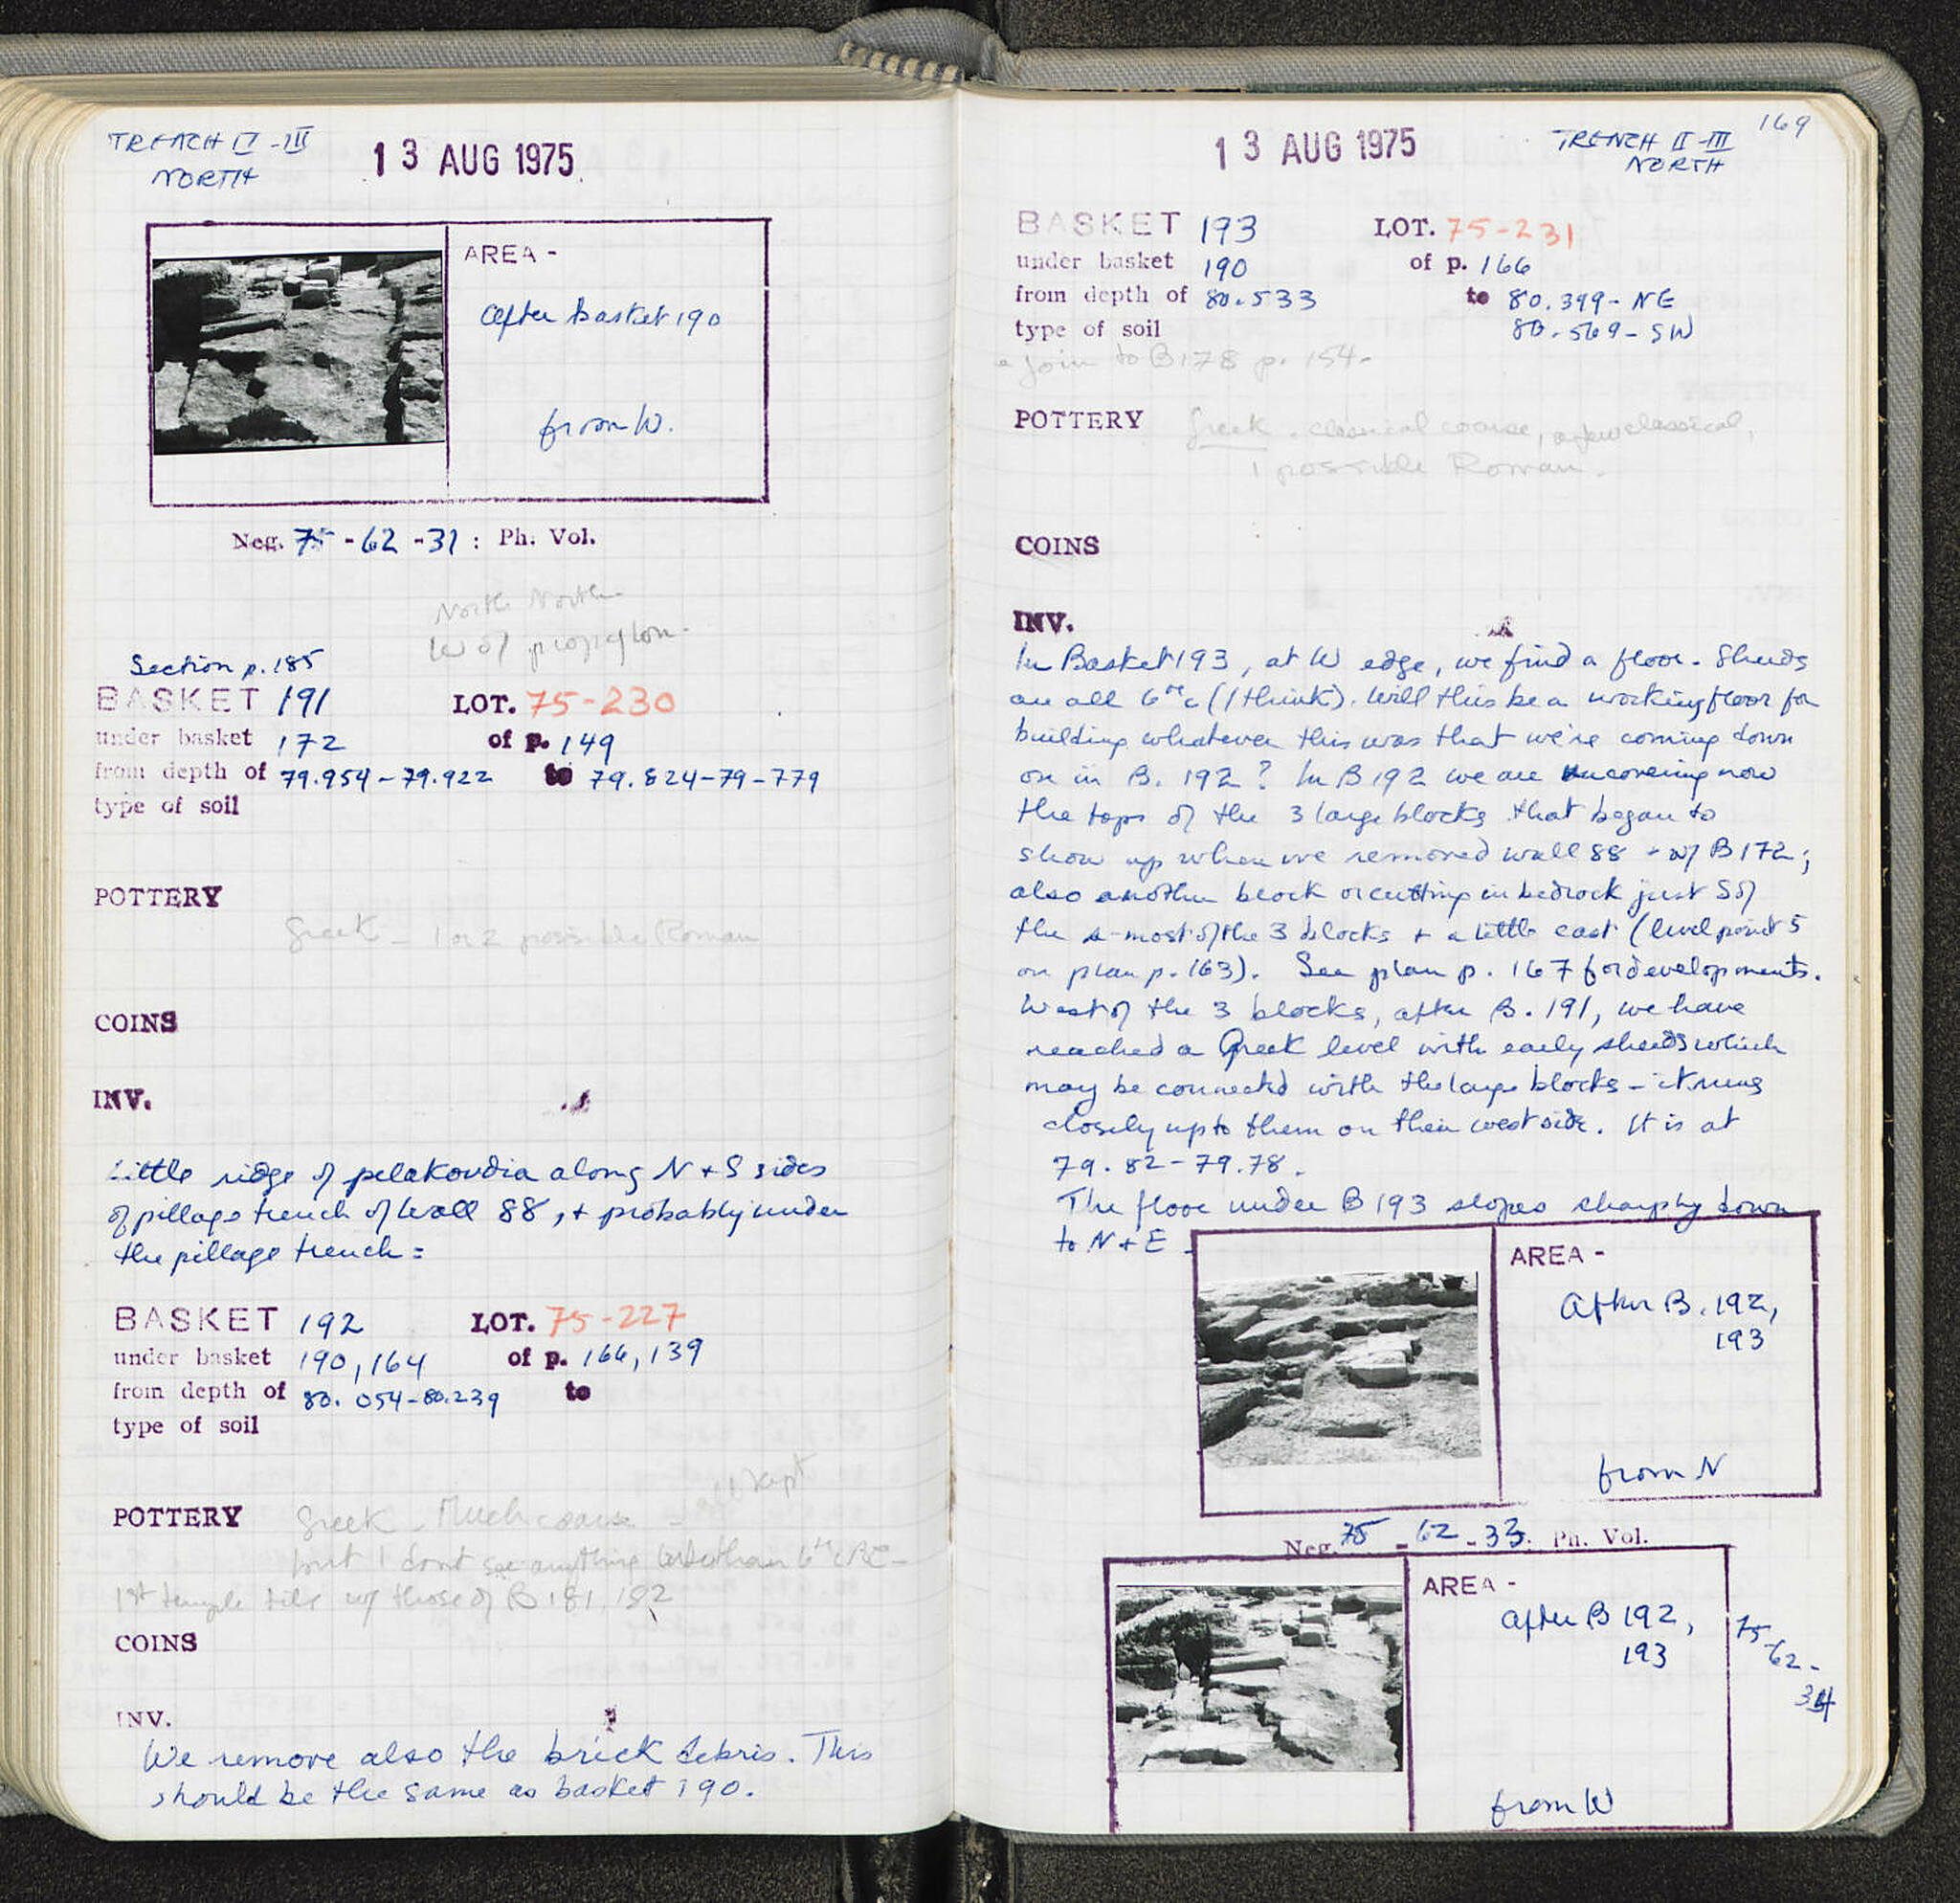 TRENCH II-III
NORTH
13 AUG 1975
AREA -
After basket 190
from W.
Neg. 75-62-31: Ph. Vol.
North North
W of propylon.
Section p. 185
BASKET 191 LOT. 75-230
under basket 172 of p. 149
from depth of 79.954-79.922 to 79.824-79-779
type of soil
POTTERY
Greek - 1 or 2 possible Roman
COINS
INV.
Little ridge of pelakoudia along N + S sides
of pillage trench of Wall 88, + probably under
the pillage trench =
BASKET 192 LOT. 75-227
under basket 190, 164 of p. 166, 139
from depth of 80.054-80.239 to
type of soil
all kept
POTTERY Greek - Much coarse -
but I dont see anything later than 6th c BC -
1st temple tile w/ those of B 181, 182
COINS
INV.
We remove also the brick debris. This
should be the same as basket 190.
169
13 AUG 1975
TRENCH II-III
NORTH
BASKET 193 LOT. 75-231
under basket 190 of p. 166
from depth of 80.533 to 80.399-NE
type of soil 80.569-SW
Join to B178 p. 154-
POTTERY Greek - classical coarse, a few classical,
1 possible Roman.
COINS
INV.
In Basket 193, at W edge, we find a floor. Sherds
are all 6th c (I think). Will this be a working floor for
building whatever this was that we're coming down
on in B. 192? In B 192 we are uncovering now
the tops of the 3 large blocks that began to
show up when we removed wall 88 + w/ B172;
also another block or cutting in bedrock just S of
the s-most of the 3 blocks + a little east (level point 5
on plan p. 163). See plan p. 167 for developments.
West of the 3 blocks, after B. 191, we have
reached a Greek level with early sherds which
may be connected with the large blocks - it runs
closely up to them on their west side. It is at
79.82-79.78.
The floor under B 193 slopes sharply down
to N + E.
AREA -
After B. 192,
193
from N
Neg. 75-62-33: Ph. Vol.
AREA -
after B 192,
193
75-62-
34
from W